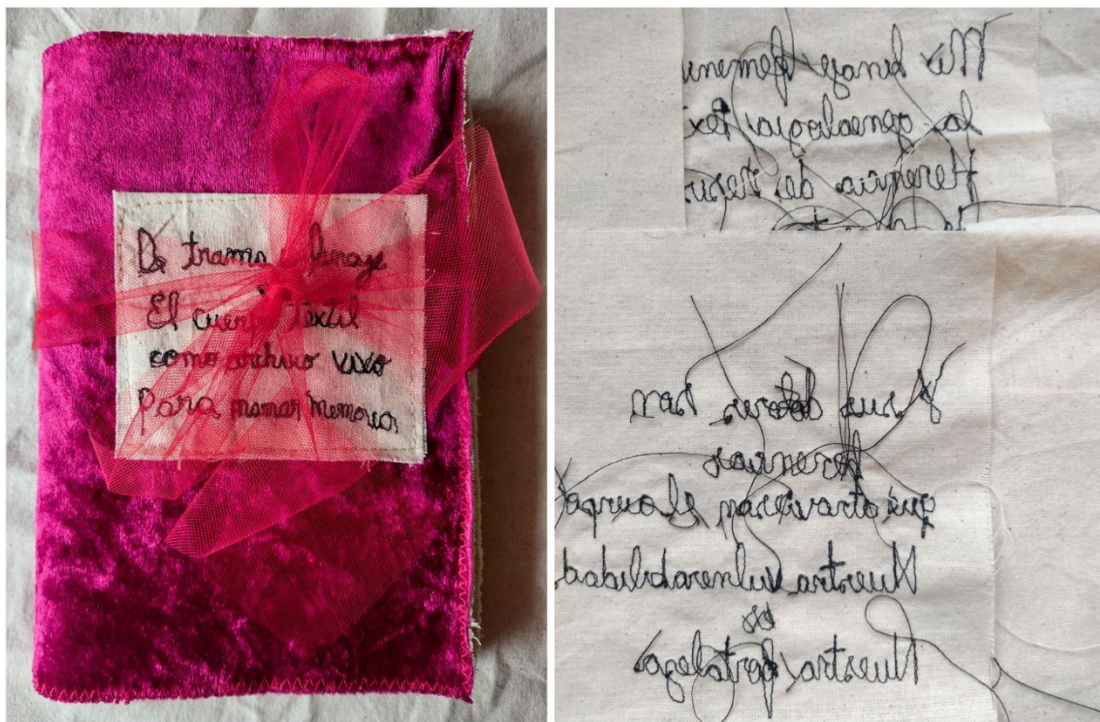 De trama linaje
El cuerpo textil
como archivo vivo
Para mamar Memoria
Mi linaje femenin
la genealogia tex
Herencia
Y sus dolores son
herencias
que atraviesan el cuerpo
Nuestra vulnerabilidad
es
Nuestra fortaleza